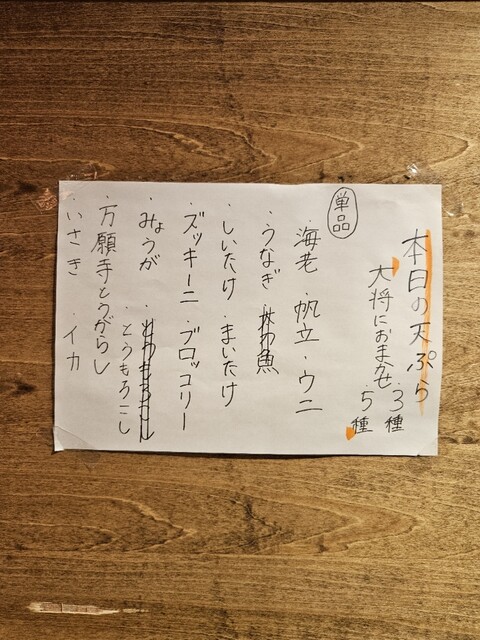 本日の天ぷら
大将におまかせ ・3種
・5種
単品
・海老 ・帆立 ・ウニ
・うなぎ
・しいたけ ・まいたけ
・ズッキーニ ・ブロッコリー
・みょうが
・とうもろこし
・万願寺とうがらし
・いさき ・イカ